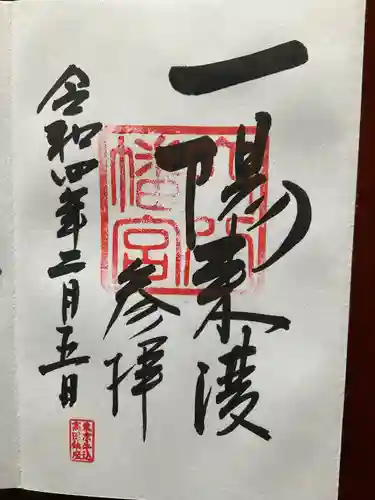 一陽来復
参拝
令和四年二月五日
八幡宮